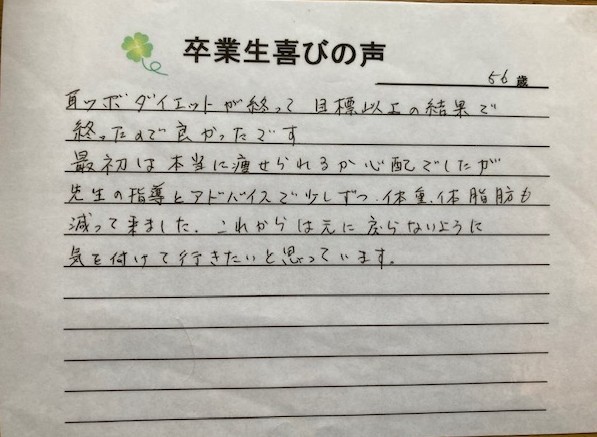 卒業生喜びの声
56歳
耳ツボダイエットが終って 目標以上の結果で
終ったので良かったです
最初は本当に痩せられるか心配でしたが
先生の指導とアドバイスで少しずつ、体重、体脂肪も
減って来ました。これからは元に戻らないように
気を付けて行きたいと思っています。